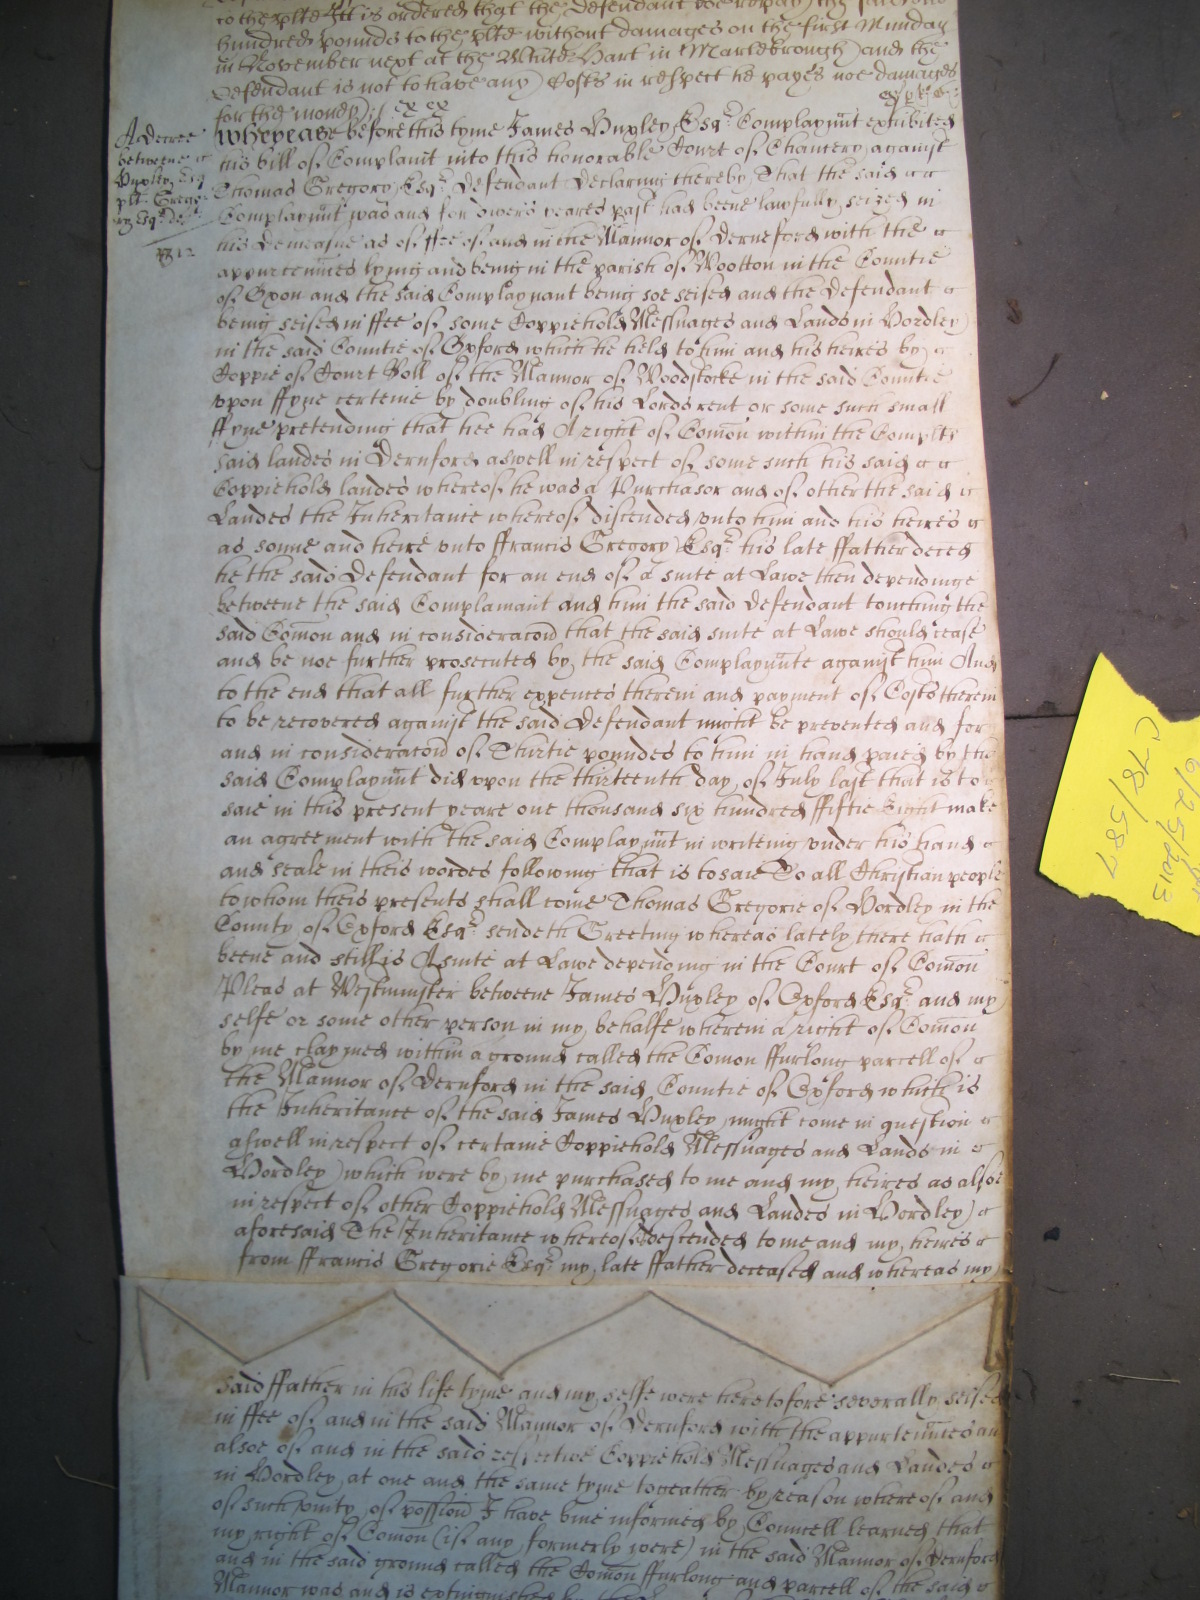 to the plte Itt is ordered that the defendant doe repay the said one
hundred pounds to the plte without damages on the first Munday
in November next at the White Hart in Marlebrough and the
defendant is not to have any Costs in respect he payes noe damages
for the money /. ex ex
A decree
betweene
Huxley Esq
plt Grego-
ry Esq de^t
12
Whereas before this tyme James Huxley Esq^r Complaynnt exhibited
his bill of Complaint into this honorable Court of Chancery against
Thomas Gregory Esq^r Defendant Declaring thereby That the said
Complaynnt was and for divers yeares past had beene lawfully seized in
his Demeasne as of ffee of and in the Mannor of Derneford with the
appurtennces lying and being in the parish of Wootton in the Countie
of Oxon and the said Complaynant being soe seised and the Defendant
being seised in ffee of some Coppiehold Messuages and Lands in Hordley
in the said Countie of Oxford which he held to him and his heires by
Coppie of Court Roll of the Mannor of Woodstocke in the said Countie
upon ffyne certeine by doubling of his Lords rent or some such small
ffyne pretending that hee had A right of Comon within the Complts
said landes in Dernford aswell in respect of some such his said
Coppiehold landes whereof he was a Purchasor and of other the said
Landes the Inheritance whereof discended unto him and his heires
as sonne and heire unto ffrancis Gregory Esq^r his late ffather deced
he the said Defendant for an end of a suite at Lawe then dependinge
betweene the said Complainant and him the said Defendant touching the
said Comon and in consideracon that the said suite at Lawe should cease
and be noe further prosecuted by the said Complaynnte against him And
to the end that all further expences therein and payment of Costs therein
to be recovered against the said Defendant might be prevented and for
and in consideracon of Thirtie poundes to him in hand paied by the
said Complaynnt did upon the thirteenth day of July last that is to
saie in this present yeare one thousand six hundred ffiftie Eight make
an agreement with the said Complaynnt in writeing under his hand
and seale in theis wordes following that is to saie To all Christian people
to whom theis presents shall come Thomas Gregorie of Hordley in the
County of Oxford Esq^r sendeth Greeting whereas lately there hath
beene and still is A suite at Lawe depending in the Court of Comon
Pleas at Westminster betweene James Huxley of Oxford Esq^r and my
selfe or some other person in my behalfe wherein a right of Comon
by me claymed within a ground called the Comon ffurlong parcell of
the Mannor of Dernford in the said Countie of Oxford which is
the Inheritance of the said James Huxley might come in question
aswell in respect of certaine Coppiehold Messuages and Lands in
Hordley which were by me purchased to me and my heires as alsoe
in respect of other Coppiehold Messuages and Landes in Hordley
aforesaid The Inheritance whereof descended to me and my heires
from ffrancis Gregorie Esq^r my late ffather deceased and whereas my
said ffather in his life tyme and my selfe were heretofore severally seised
in ffee of and in the said Mannor of Dernford with the appurtennces an
alsoe of and in the said respective Coppiehold Messuages and Landes
in Hordley at one and the same tyme togeather by reason whereof and
of such unity of possion I have bine informed by Councell learned that
my right of Comon (if any formerly were) in the said Mannor of Dernford
and in the said ground called the Comon ffurlong and parcell of the said
Mannor was and is extinguished by
6/25/2013
C78/587